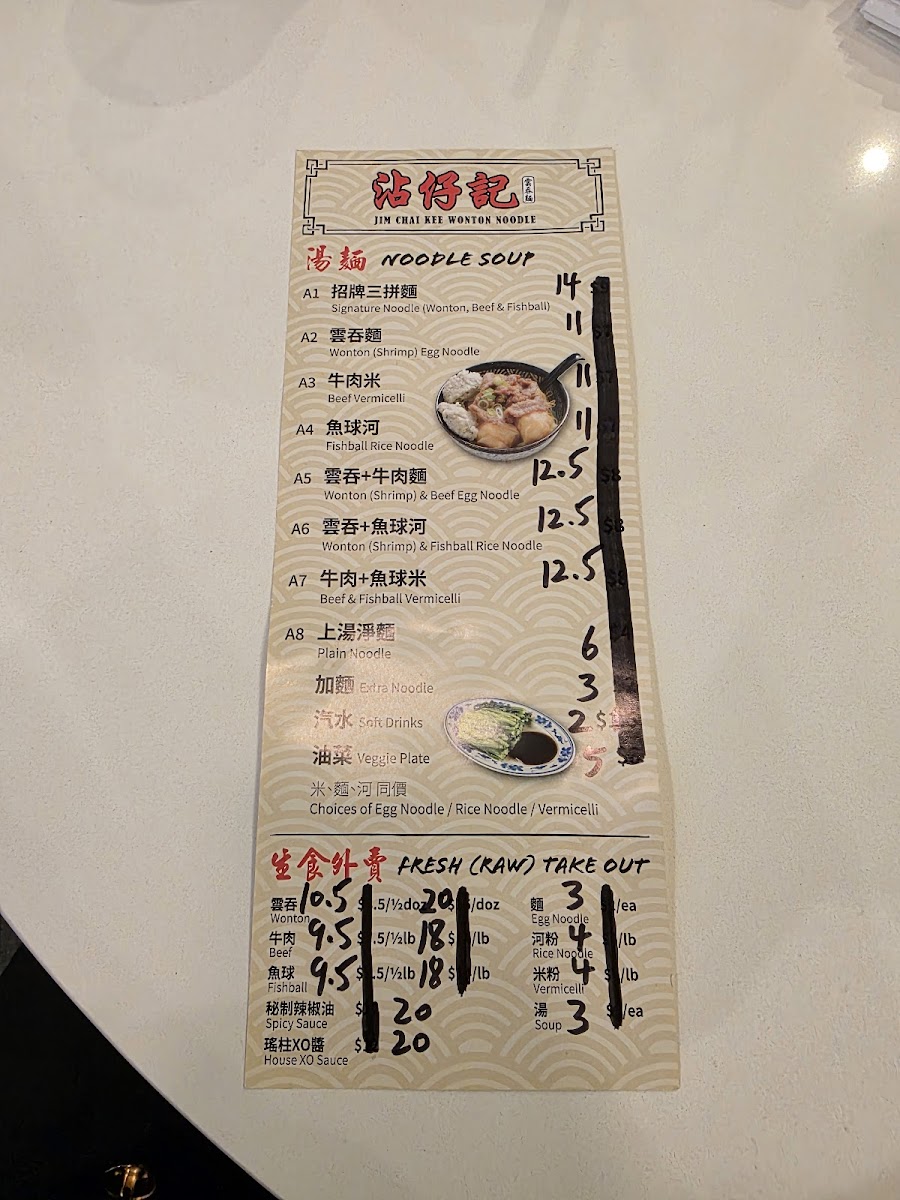 沾仔記 雲吞麵
JIM CHAI KEE WONTON NOODLE
湯麵 NOODLE SOUP
A1 招牌三拼麵 14
Signature Noodle (Wonton, Beef & Fishball)
A2 雲吞麵 11
Wonton (Shrimp) Egg Noodle
A3 牛肉米 11
Beef Vermicelli
A4 魚球河 11
Fishball Rice Noodle
A5 雲吞+牛肉麵 12.5 $8
Wonton (Shrimp) & Beef Egg Noodle
A6 雲吞+魚球河 12.5 $8
Wonton (Shrimp) & Fishball Rice Noodle
A7 牛肉+魚球米 12.5 $8
Beef & Fishball Vermicelli
A8 上湯淨麵 6
Plain Noodle
加麵 Extra Noodle 3
汽水 Soft Drinks 2 $
油菜 Veggie Plate 5 $
米、麵、河 同價
Choices of Egg Noodle / Rice Noodle / Vermicelli
生食外賣 FRESH (RAW) TAKE OUT
雲吞 10.5 $ .5/½doz 20 $ /doz 麵 3 /ea
Wonton Egg Noodle
牛肉 9.5 $ .5/½lb 18 $ /lb 河粉 4 /lb
Beef Rice Noodle
魚球 9.5 $ .5/½lb 18 $ /lb 米粉 4 /lb
Fishball Vermicelli
秘制辣椒油 $ 20 湯 3 /ea
Spicy Sauce Soup
瑤柱XO醬 $ 20
House XO Sauce